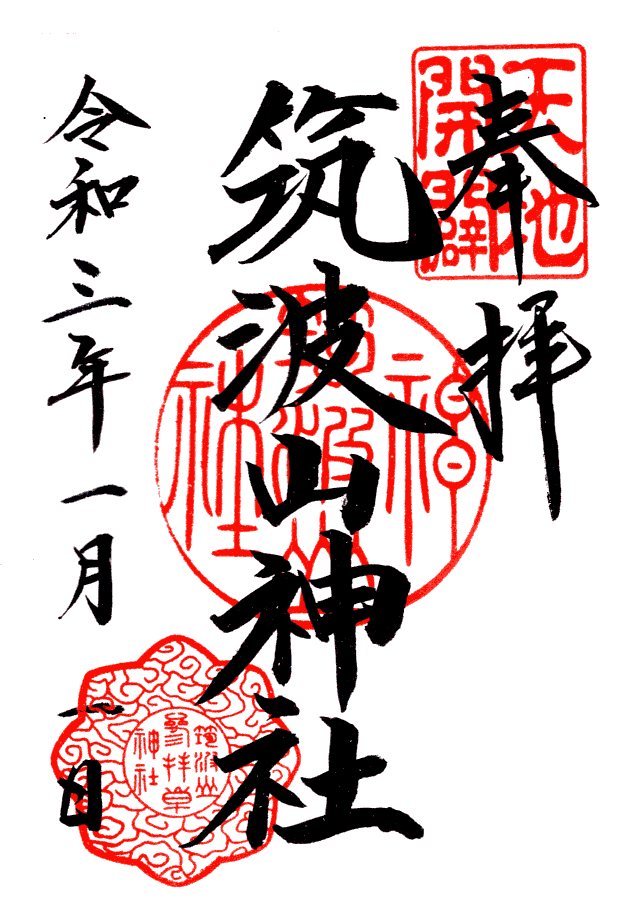 奉拝
天地
開闢
筑波山神社
筑波山
神社
令和三年一月一日
筑波山
参拝章
神社